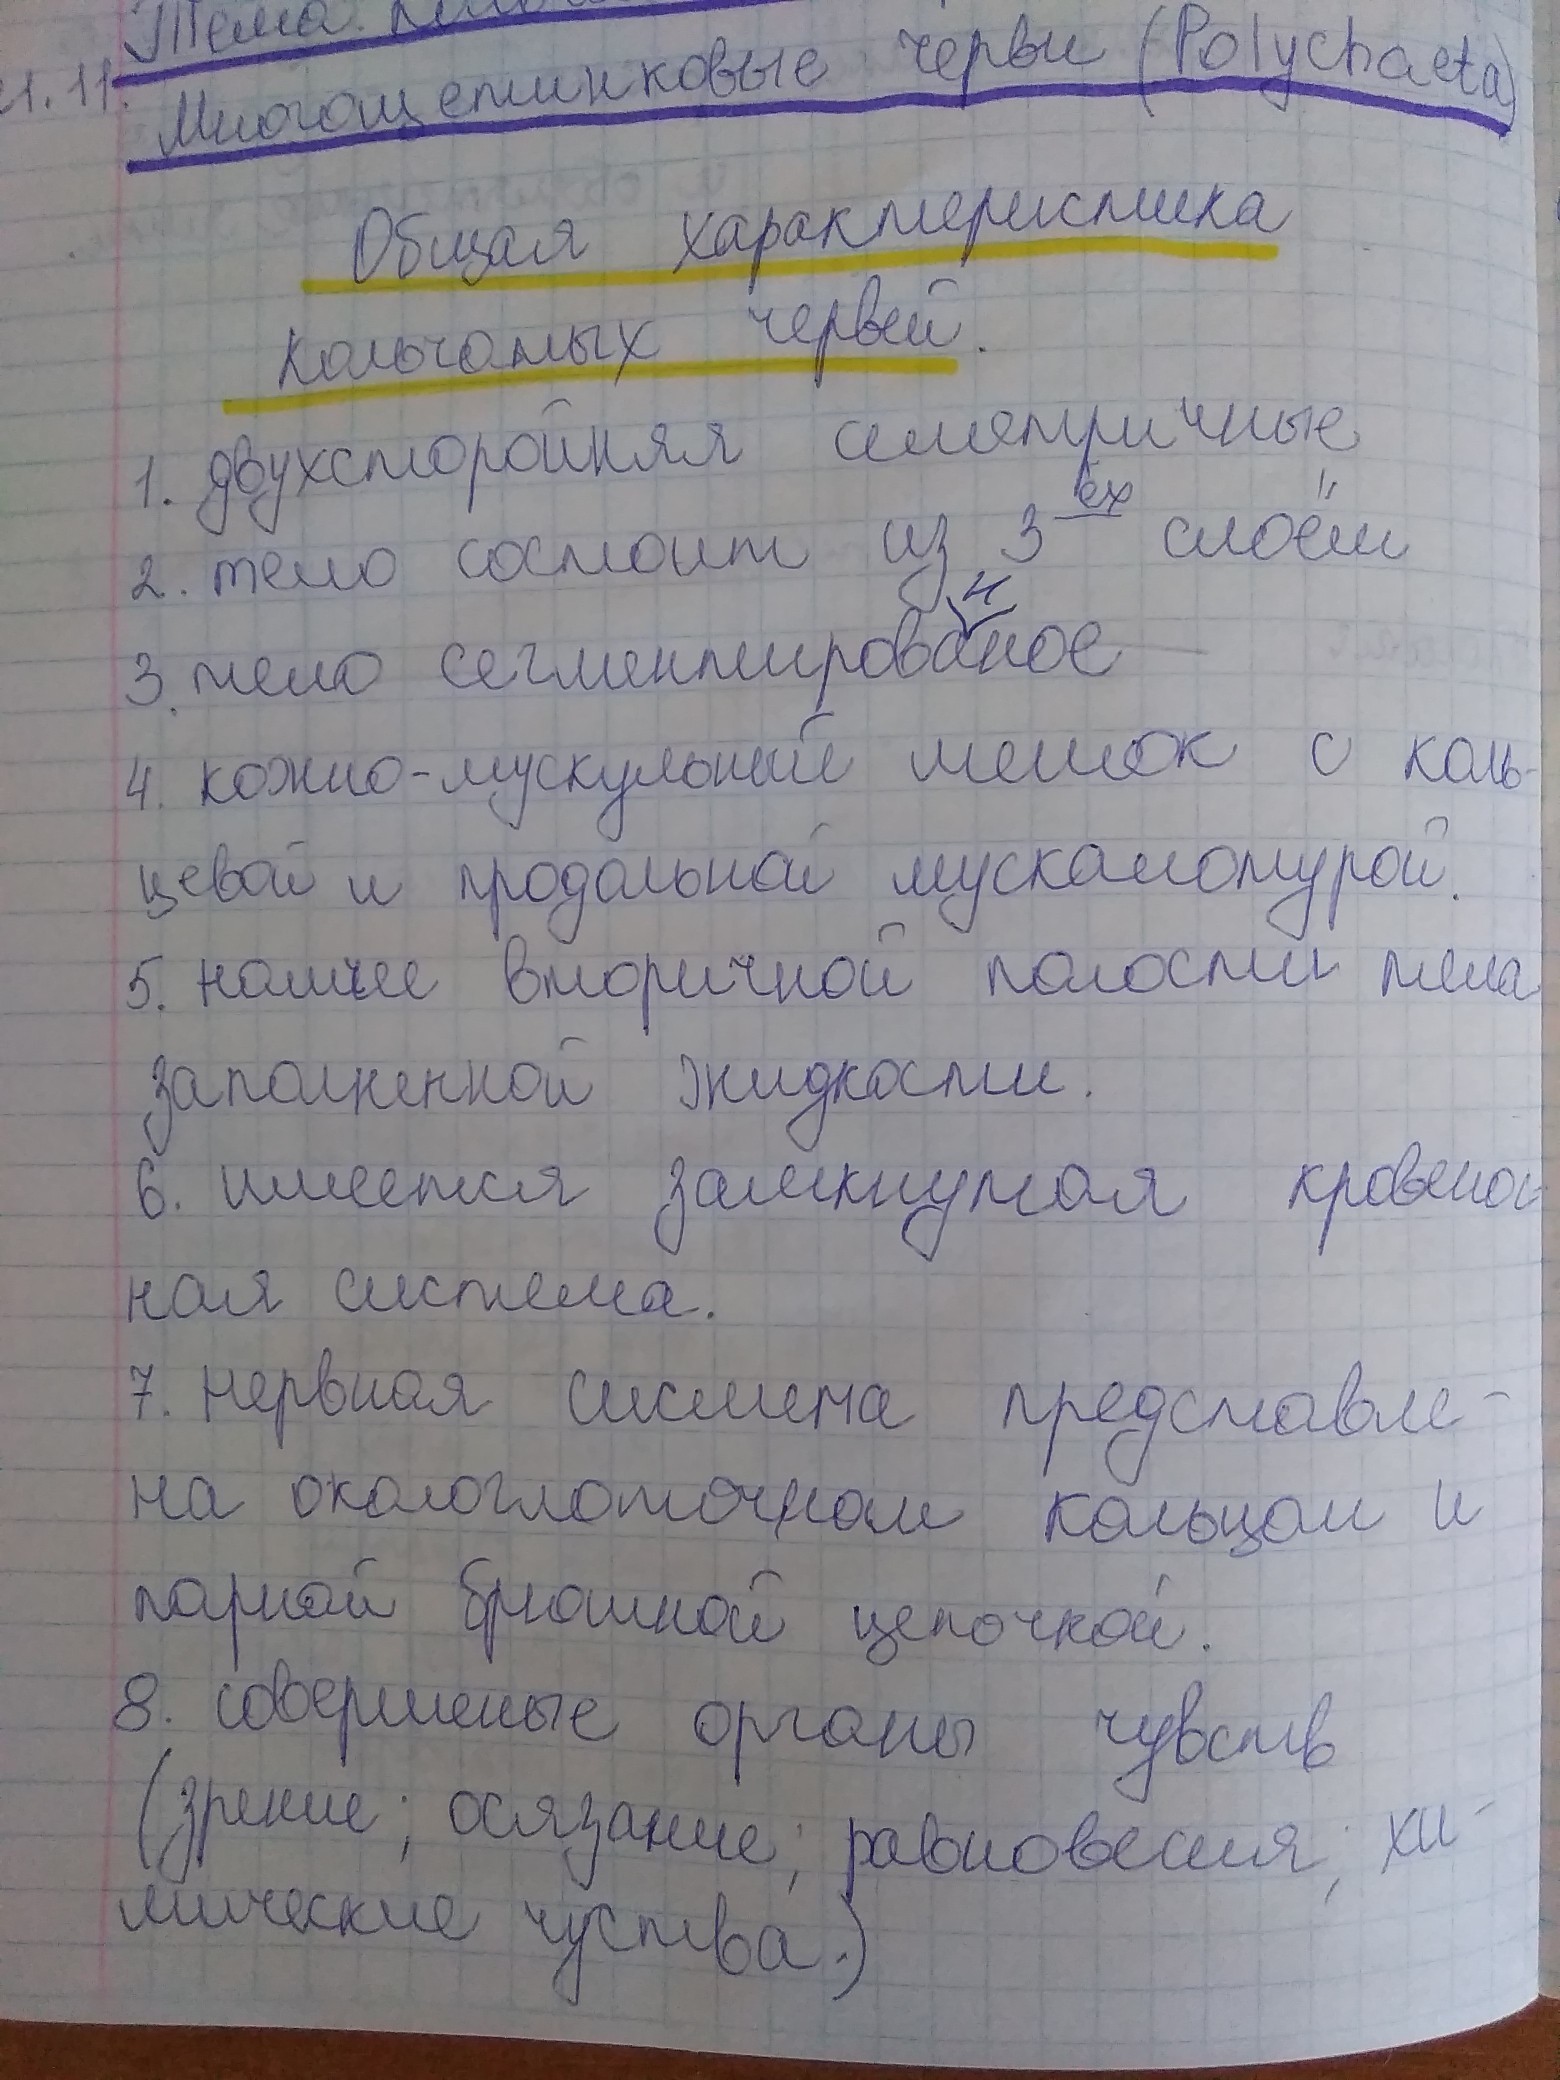 Тема.
11. Многощетинковые черви (Polychaeta)
Общая характеристика
кольчатых червей.
1. двухсторойняя симятричные
2. тело состоит из 3 ёх слоёв
3. тело сегментированое н
4. кожно-мускульный мешок с коль-
цевой и продольной мускалотурой.
5. наличее вторичной полости тела
заполненной жидкости.
6. имеется замкнутая кровенос-
ная система.
7. нервная система представле-
на окологлоточном кольцом и
парной брюшной цепочкой.
8. совершеные органы чувств
(зрение; осязание; равновесия; хи-
мические чуства.)